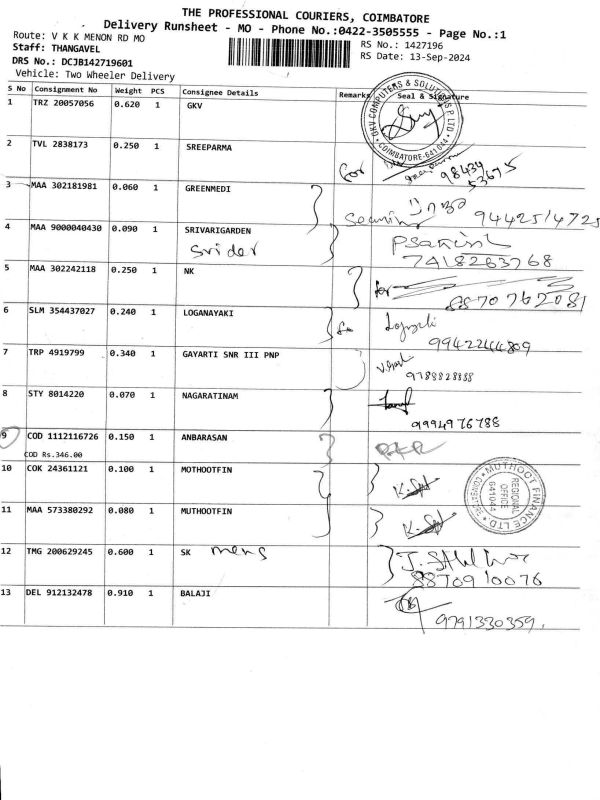 THE PROFESSIONAL COURIERS, COIMBATORE
Delivery Runsheet - MO - Phone No.:0422-3505555 - Page No.:1
Route: V K K MENON RD MO
RS No.: 1427196
Staff: THANGAVEL
RS Date: 13-Sep-2024
DRS No.: DCJB142719601
Vehicle: Two Wheeler Delivery
S No Consignment No Weight PCS Consignee Details Remarks Seal & Signature
1 TRZ 20057056 0.620 1 GKV
GKV COMPUTERS & SOLUTIONS P LTD
COIMBATORE-641 044
2 TVL 2838173 0.250 1 SREEPARMA
for
98434
53675
3 MAA 302181981 0.060 1 GREENMEDI
9442514725
4 MAA 9000040430 0.090 1 SRIVARIGARDEN
Srider
7418263768
5 MAA 302242118 0.250 1 NK
for
8870762081
6 SLM 354437027 0.240 1 LOGANAYAKI
9942244809
7 TRP 4919799 0.340 1 GAYARTI SNR III PNP
9788828888
8 STY 8014220 0.070 1 NAGARATINAM
9994976788
9 COD 1112116726 0.150 1 ANBARASAN
COD Rs.346.00
10 COK 24361121 0.100 1 MOTHOOTFIN
MUTHOOT FINANCE LTD
REGIONAL
OFFICE
641044
11 MAA 573380292 0.080 1 MUTHOOTFIN
12 TMG 200629245 0.600 1 SK mens
8870910076
13 DEL 912132478 0.910 1 BALAJI
9791330359.